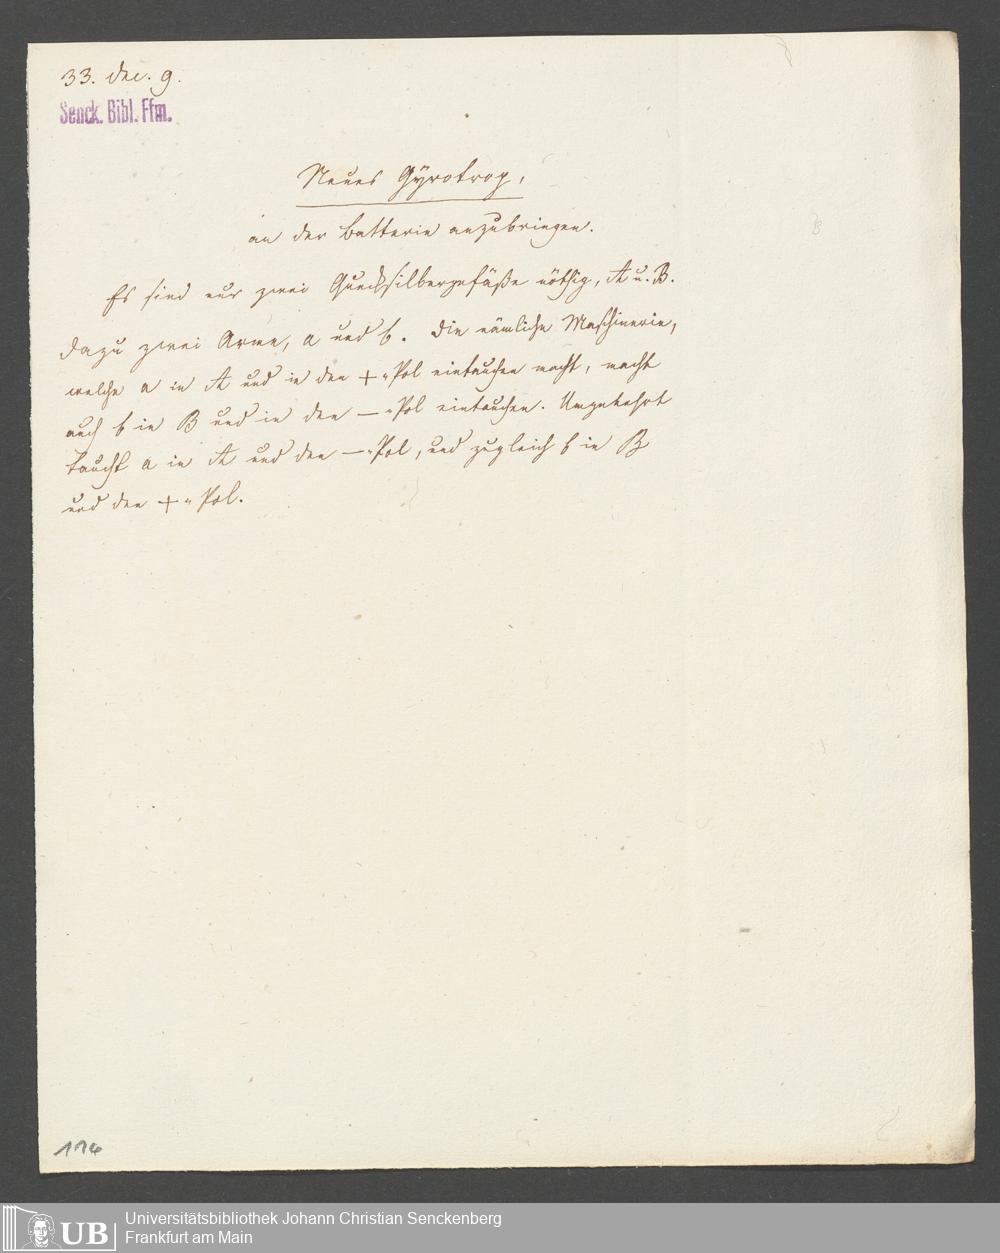 33. dec. 9.
Senck. Bibl. Ffm.
Neues Gyrotrop,
an der Batterie anzubringen.
Es sind nur zwei Quecksilbergefäße nöthig, A u. B.
Dazu zwei Arme, a und b. Die nämliche Maschinerie,
welche a in A und in den + „Pol eintauchen macht, macht
auch b in B und in den — „Pol eintauchen. Umgekehrt
taucht a in A und den — „Pol, und zugleich b in B
und den + „Pol.
114
UB
Universitätsbibliothek Johann Christian Senckenberg
Frankfurt am Main